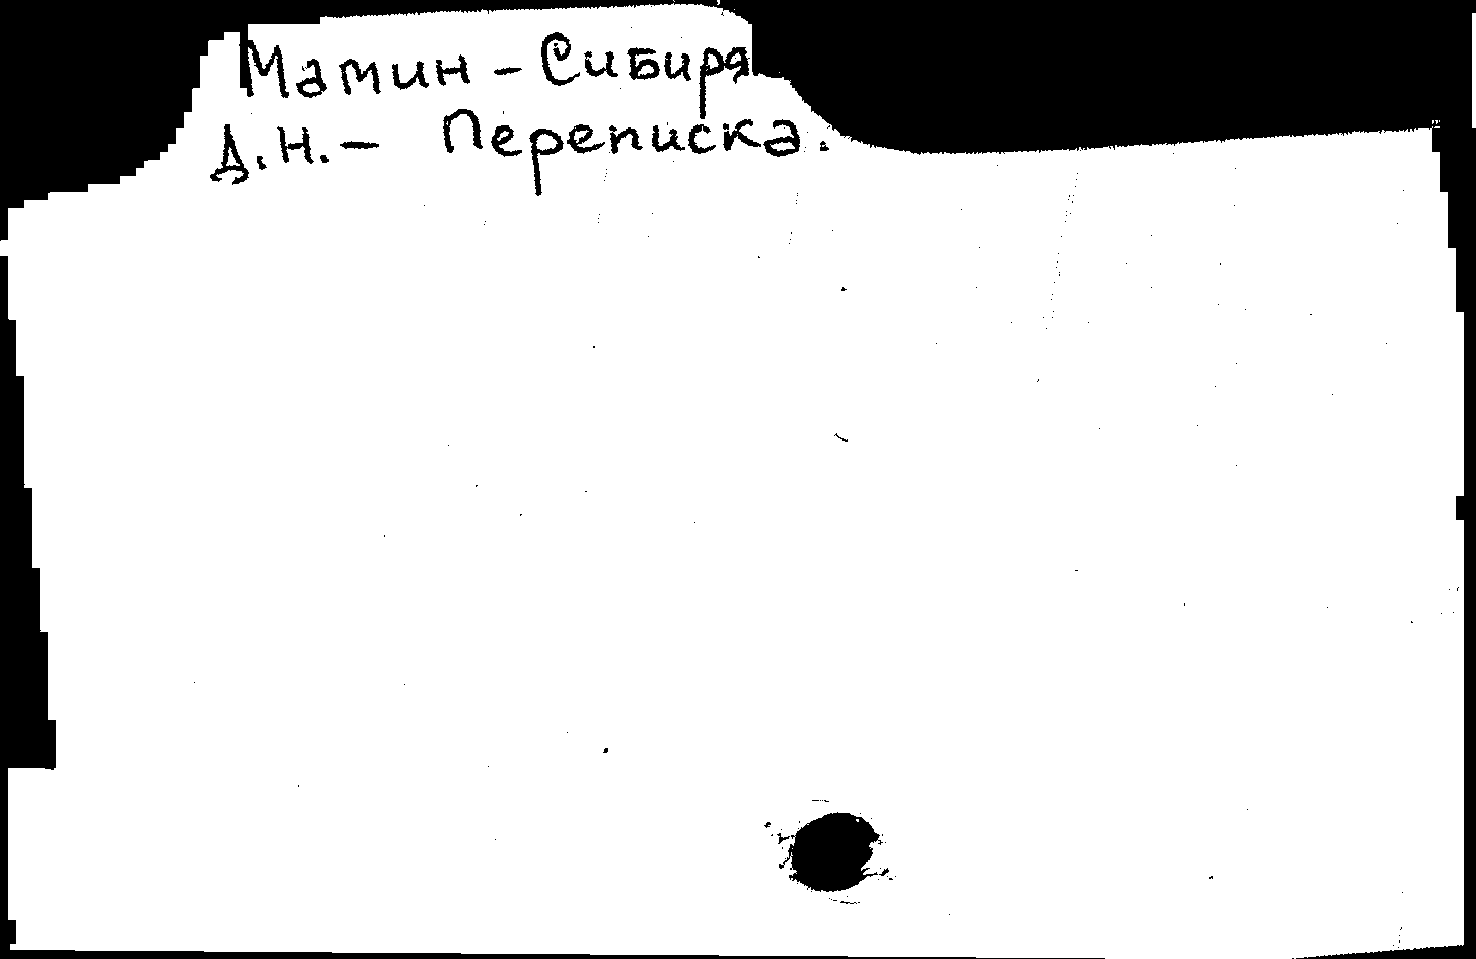 Мамин-Сибиря
Д.Н.- Переписка.